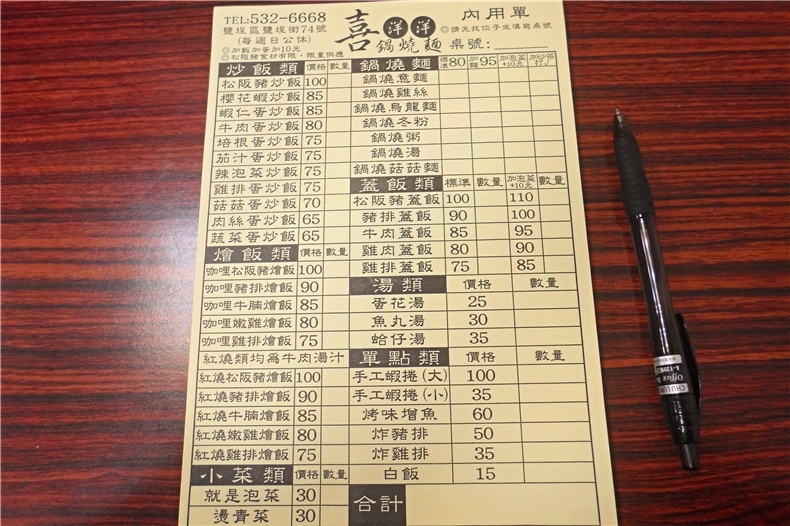 TEL:532-6668
鹽埕區鹽埕街74號
(每週日公休)
◎加飯加蛋加10元
◎松阪豬食材有限,限量供應
喜洋洋
鍋燒麵
內用單
◎請先找位子坐填寫桌號
桌號:
炒飯類 價格 數量
松阪豬炒飯 100
櫻花蝦炒飯 85
蝦仁蛋炒飯 85
牛肉蛋炒飯 80
培根蛋炒飯 75
茄汁蛋炒飯 75
辣泡菜炒飯 75
雞排蛋炒飯 75
菇菇蛋炒飯 70
肉絲蛋炒飯 65
蔬菜蛋炒飯 65
燴飯類 價格 數量
咖哩松阪豬燴飯 100
咖哩豬排燴飯 90
咖哩牛腩燴飯 85
咖哩嫩雞燴飯 80
咖哩雞排燴飯 75
紅燒類均為牛肉湯汁
紅燒松阪豬燴飯 100
紅燒豬排燴飯 90
紅燒牛腩燴飯 85
紅燒嫩雞燴飯 80
紅燒雞排燴飯 75
小菜類 價格 數量
就是泡菜 30
燙青菜 30
鍋燒麵 標準 80 加麵 95 加泡菜+10元 加沙茶打✓
鍋燒意麵
鍋燒雞絲
鍋燒烏龍麵
鍋燒冬粉
鍋燒粥
鍋燒湯
鍋燒菇菇麵
蓋飯類 標準 數量 加泡菜+10元 數量
松阪豬蓋飯 100 110
豬排蓋飯 90 100
牛肉蓋飯 85 95
雞肉蓋飯 80 90
雞排蓋飯 75 85
湯類 價格 數量
蛋花湯 25
魚丸湯 30
蛤仔湯 35
單點類 價格 數量
手工蝦捲(大) 100
手工蝦捲(小) 35
烤味增魚 60
炸豬排 50
炸雞排 35
白飯 15
合計
Office